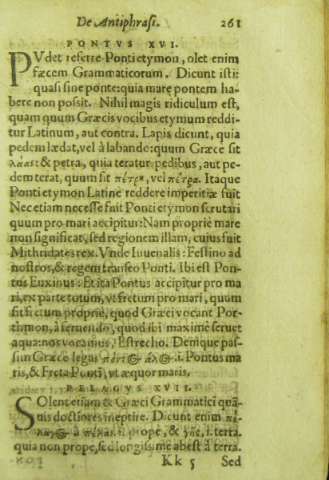 De Antiphrasi. 261
PONTVS XVI.
PVdet referre Ponti etymon, olet enim
fæcem Grammaticorum. Dicunt isti:
quasi sine ponte: quia mare pontem ha-
bere non possit. Nihil magis ridiculum est,
quam quum Græcis vocibus etymum reddi-
tur Latinum, aut contra. Lapis dicunt, quia
pedem lædat, vel à labande: quum Græce sit
λᾶας: & petra, quia teratur pedibus, aut pe-
dem terat, quum sit πέτρα, vel πέτρα. Itaque
Ponti etymon Latine reddere imperitiæ fuit
Nec etiam necesse fuit Ponti etymon scrutari
quum pro mari accipitur: Nam proprie mare
non significat, sed regionem illam, cuius fuit
Mithridates rex. Vnde Iuuenalis: Festino ad
nostros, & regem transeo Ponti. Ibi est Pon-
tus Euxinus: Et ita Pontus accipitur pro ma
ri, ex parte totum, vt fretum pro mari, quum
sit fictum proprie, quod Græci vocant Por-
thmon, à feruendo, quod ibi maxime feruet
aqua: nos vocamus, Estrecho. Denique pas-
sim Græce legas i. Pontus ma
ris, & Freta Ponti, vt æquor maris.
PELAGVS XVII.
SOlent etiam & Græci Grammatici quã-
uis doctiores ineptire. Dicunt enim πέ-
λαγος à πέλας i. prope, & γῆς, i. terra.
quia non prope, sed longissime abest à terra.
Kk 5 Sed